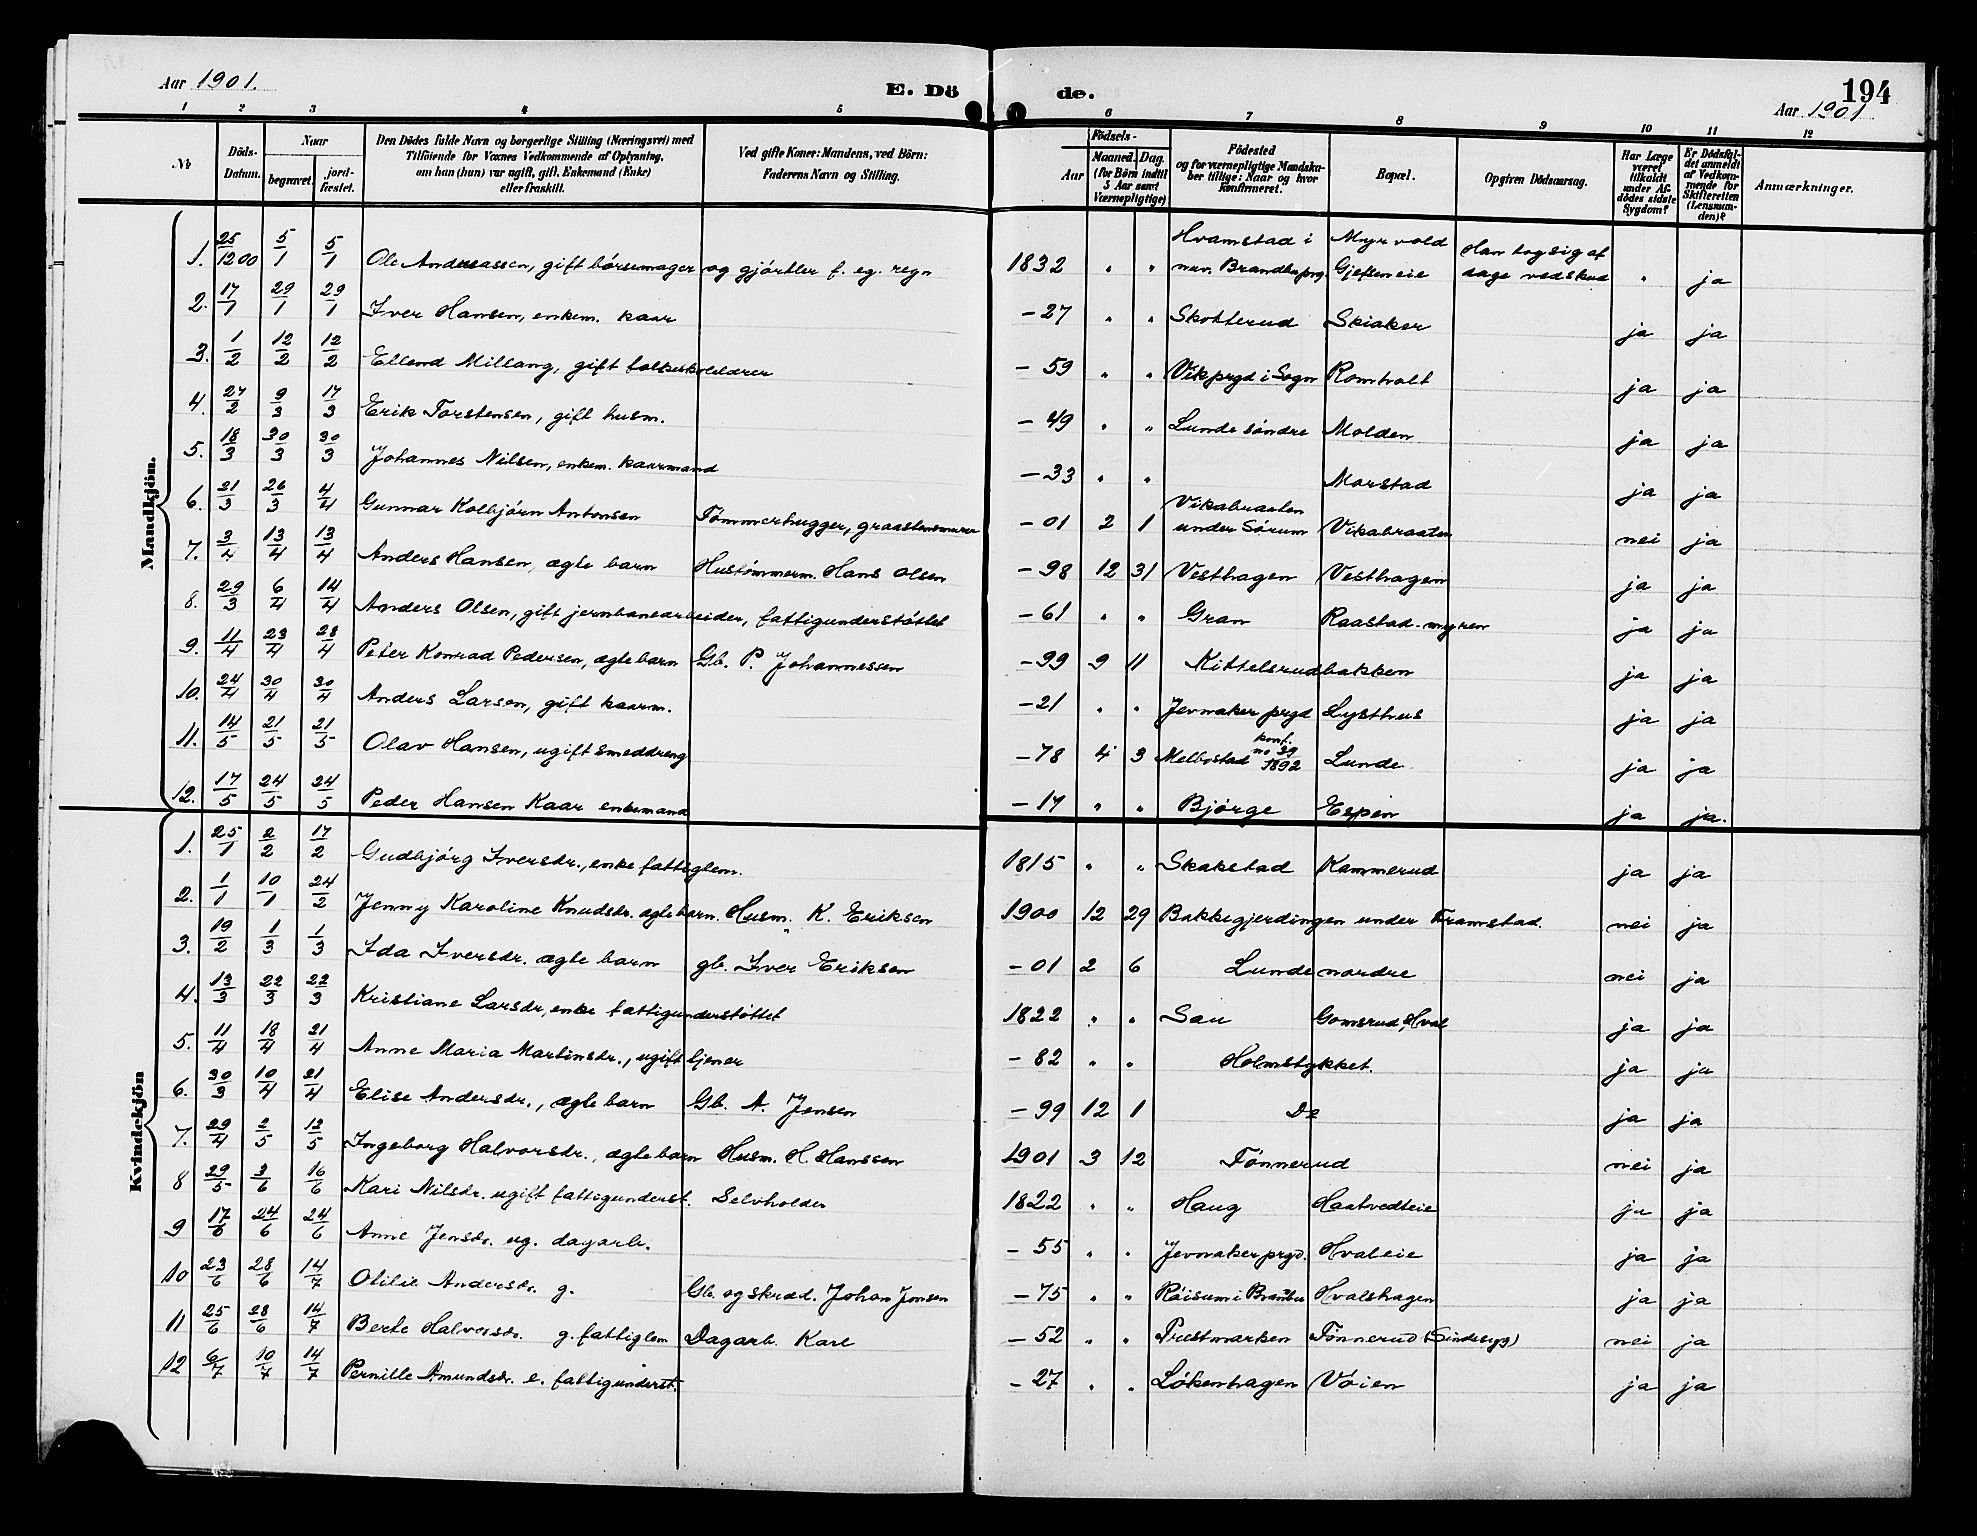 Aar 1901.
E. Dö de.
194
Aar 1901
1 2 3 4 5 6 7 8 9 10 11 12
No
Döds-Datum.
Naar
begravet.
jord-fæstet.
Den Dödes fulde Navn og borgerlige Stilling (Næringsvei) med
Tilföiende for Voxnes Vedkommende af Oplysning,
om han (hun) var ugift, gift, Enkemand (Enke)
eller fraskilt.
Ved gifte Koner: Mandens, ved Börn:
Faderens Navn og Stilling.
Födsels-
Aar
Maaned. Dag.
(for Börn indtil
5 Aar samt
Værnepligtige)
Födested
og for værnepligtige Mandska-
ber tillige: Naar og hvor
Konfirmeret.
Bopæl.
Opgiven Dödsaarsag.
Har Læge
været
tilkaldt
under Af-
dödes sidste
Sygdom?
Er Dödsfal-
det anmeldt
af Vedkom-
mende for
Skifteretten
(Lensman-
den)?
Anmærkninger.
Mandkjön.
1. 25/12 00 5/1 5/1 Ole Andreassen, gift börsemager og gjörtler f. eg. regn 1832 " " Hvamstad i nuv. Brandbu prg. Myrvold Gjefseneie Han tog sig af dage ved skud " ja
2. 17/1 29/1 29/1 Iver Hansen, enkem. kaar -27 " " Skotterud Skiaker ja ja
3. 1/2 12/2 12/2 Ellend Millang, gift folkeskolelærer -59 " " Vik prgd i Sogn Romholt ja ja
4. 27/2 9/3 17/3 Erik Torstensen, gift husm. -49 " " Lunde söndre Molden ja ja
5. 18/3 30/3 30/3 Johannes Nilsen, enkem. kaarmand -33 " " Morstad ja ja
6. 21/3 26/3 4/4 Gunnar Kolbjörn Antonsen Tömmerhugger, graastensmurer -01 2 1 Vikabraaten under Sörum Vikabraaten nei ja
7. 3/4 13/4 13/4 Anders Hansen, ægte barn Hustömmerm. Hans Olsen -98 12 31 Vesthagen Vesthagen ja ja
8. 29/3 6/4 14/4 Anders Olsen, gift jernbanearbeider, fattigunderstöttet -61 " " Gran Raastad-myren ja ja
9. 11/4 23/4 28/4 Peter Konrad Pedersen, ægte barn Gb. P. Johannessen -99 9 11 Kittelsrudbakken ja ja
10. 24/4 30/4 30/4 Anders Larsen, gift kaarm. -21 " " Jevnaker prgd Lysthus ja ja
11. 14/5 21/5 21/5 Olav Hansen, ugift smeddreng -78 4 3 Melbostad konf. no 39 1892 Lunde ja ja
12. 17/5 24/5 24/5 Peder Hansen Kaar enkemand -17 " " Bjørge Espen ja ja.
Kvindekjön
1. 25/1 2/2 17/2 Gudbjörg Iversdr., enke fattiglem. 1815 " " Skakstad Kammerud ja ja
2. 1/1 10/1 24/2 Jenny Karoline Knudsdr. ægte barn. Husm. K. Eriksen 1900 12 29 Bakkegjerdingen under Framstad. nei ja
3. 19/2 1/3 1/3 Ida Iversdr. ægte barn gb. Iver Eriksen -01 2 6 Lunde nordre nei ja
4. 13/3 22/3 22/3 Kristiane Larsdr, enke fattigunderstöttet 1822 " " San Gomsrud, Hval ja ja
5. 11/4 18/4 21/4 Anne Maria Martinsdr., ugift tjener -82 " " Holmstykket. ja ja
6. 30/3 10/4 21/4 Elise Andersdr., ægte barn Gb. A. Jensen -99 12 1 Do ja ja
7. 29/4 2/5 12/5 Ingeborg Halvorsdr., ægte barn Husm. H. Hanssen 1901 3 12 Tönnerud nei ja
8 29/5 3/6 16/6 Kari Nilsdr. ugift fattigunderst. Selvholder 1822 " " Haug Haatvedteie ja ja
9 17/6 24/6 24/6 Anne Jensdr. ug. dagarb. -55 " " Jevnaker prgd. Hvaleie ja ja
10 23/6 28/6 14/7 Otilie Andersdr. g. Gb. og skræd. Johan Jonsen -75 " " Röisum i Brandbu Hvalshagen ja ja
11 25/6 28/6 14/7 Berte Halvorsdr. g. fattiglem Dagarb. Karl -52 " " Prestmarken Tönnerud (Sindssyg) nei ja
12 6/7 10/7 14/7 Pernille Amundsdr. e. fattigunderst. -27 " " Lökenhagen Vöien ja ja